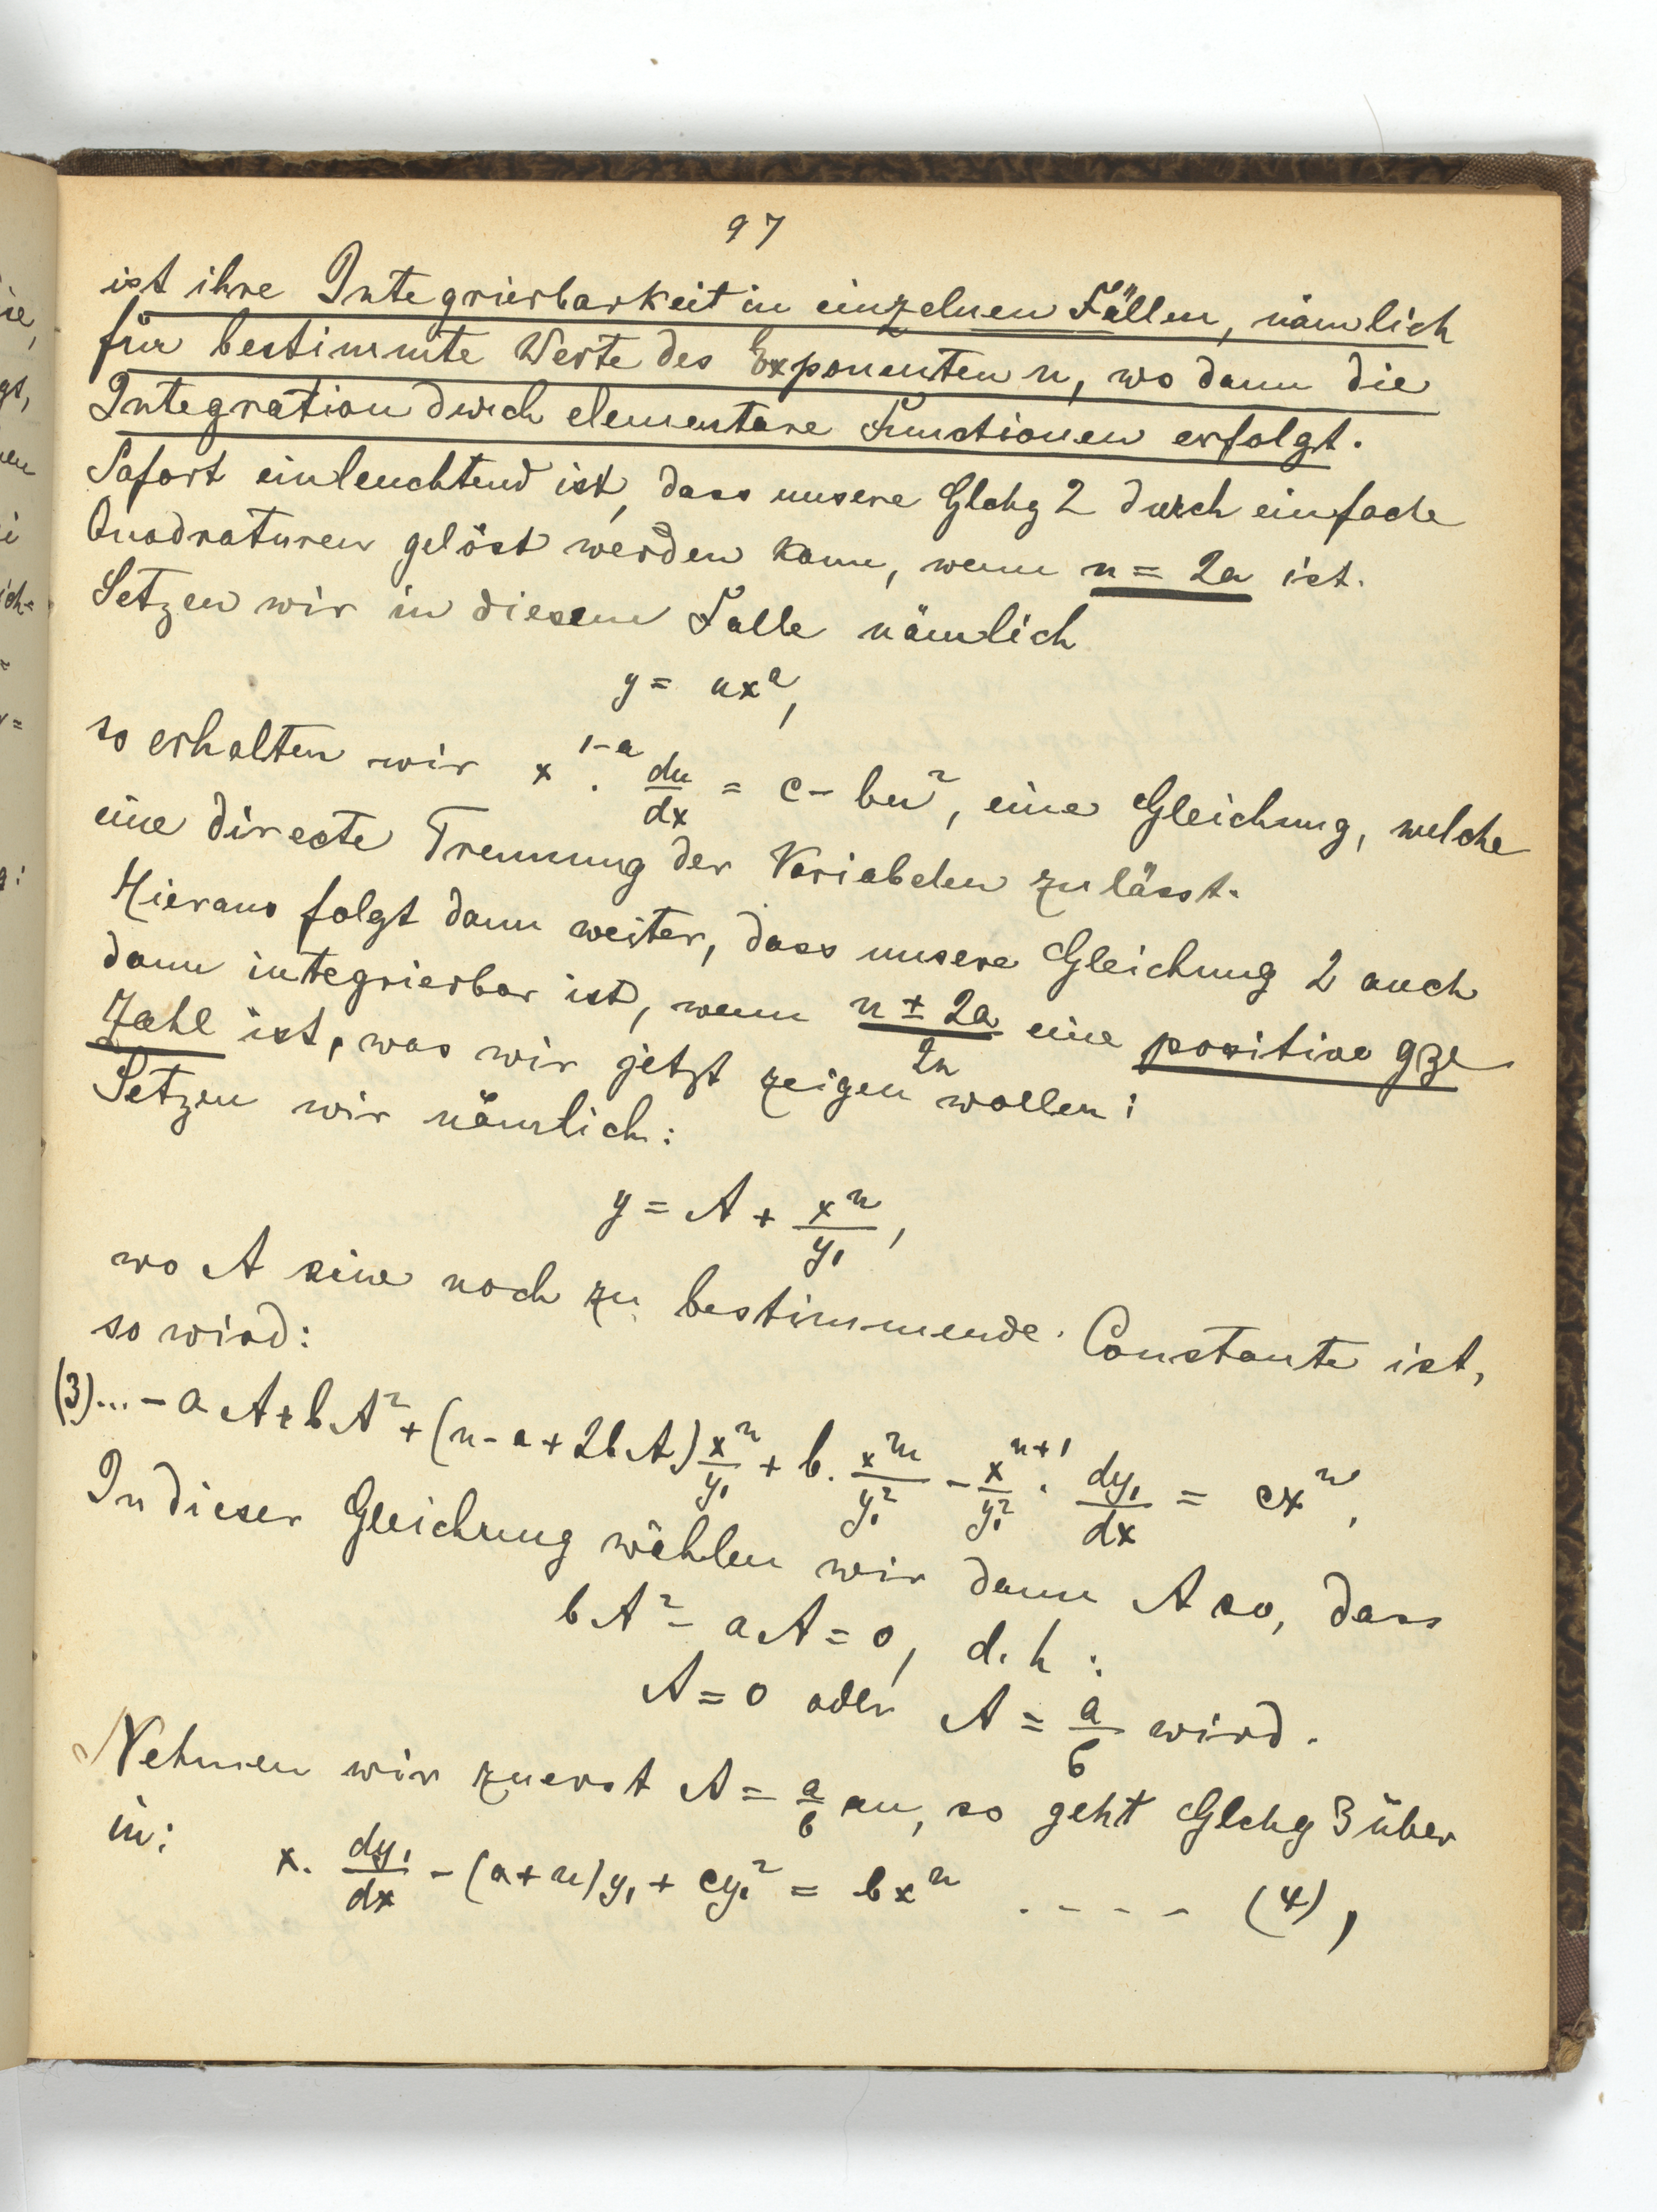 97
ist ihre Integrierbarkeit in einzelnen Fällen, nämlich
für bestimmte Werte des Exponenten n, wo dann die
Integration durch elementare Functionen erfolgt.
Sofort einleuchtend ist, dass unsere Glchg 2 durch einfache
Quadraturen gelöst werden kann, wenn n = 2a ist.
Setzen wir in diesem Falle nämlich
y = ux^a,
so erhalten wir x^{1-a} · du/dx = c - bu², eine Gleichung, welche
eine directe Trennung der Variabelen zulässt.
Hieraus folgt dann weiter, dass unsere Gleichung 2 auch
dann integrierbar ist, wenn (n ± 2a)/2n eine positive gze
Zahl ist, was wir jetzt zeigen wollen:
Setzen wir nämlich:
y = A + x^n/y₁,
wo A eine noch zu bestimmende Constante ist,
so wird:
(3)... - aA + bA² + (n - a + 2bA) x^n/y₁ + b · x^{2n}/y₁² - x^{n+1}/y₁² · dy₁/dx = cx^n.
In dieser Gleichung wählen wir dann A so, dass
bA² - aA = 0, d. h:
A = 0 oder A = a/b wird.
Nehmen wir zuerst A = a/b an, so geht Glchg 3 über
in:
x · dy₁/dx - (a + n)y₁ + cy₁² = bx^n . - - - - (4),